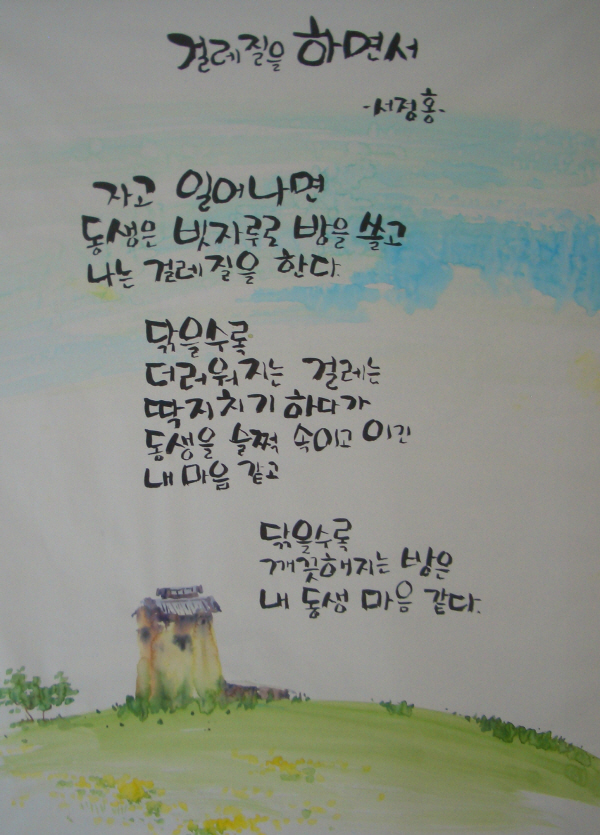 걸레질을 하면서
-서정홍-
자고 일어나면
동생은 빗자루로 방을 쓸고
나는 걸레질을 한다.
닦을수록
더러워지는 걸레는
딱지치기 하다가
동생을 슬쩍 속이고 이긴
내 마음 같고
닦을수록
깨끗해지는 방은
내 동생 마음 같다.